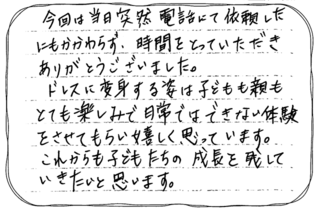 今回は当日突然電話にて依頼した
にもかかわらず、時間をとっていただき
ありがとうございました。
ドレスに変身する姿は子どもも親も
とても楽しみで日常ではできない体験
をさせてもらい嬉しく思っています。
これからも子どもたちの成長を残して
いきたいと思います。